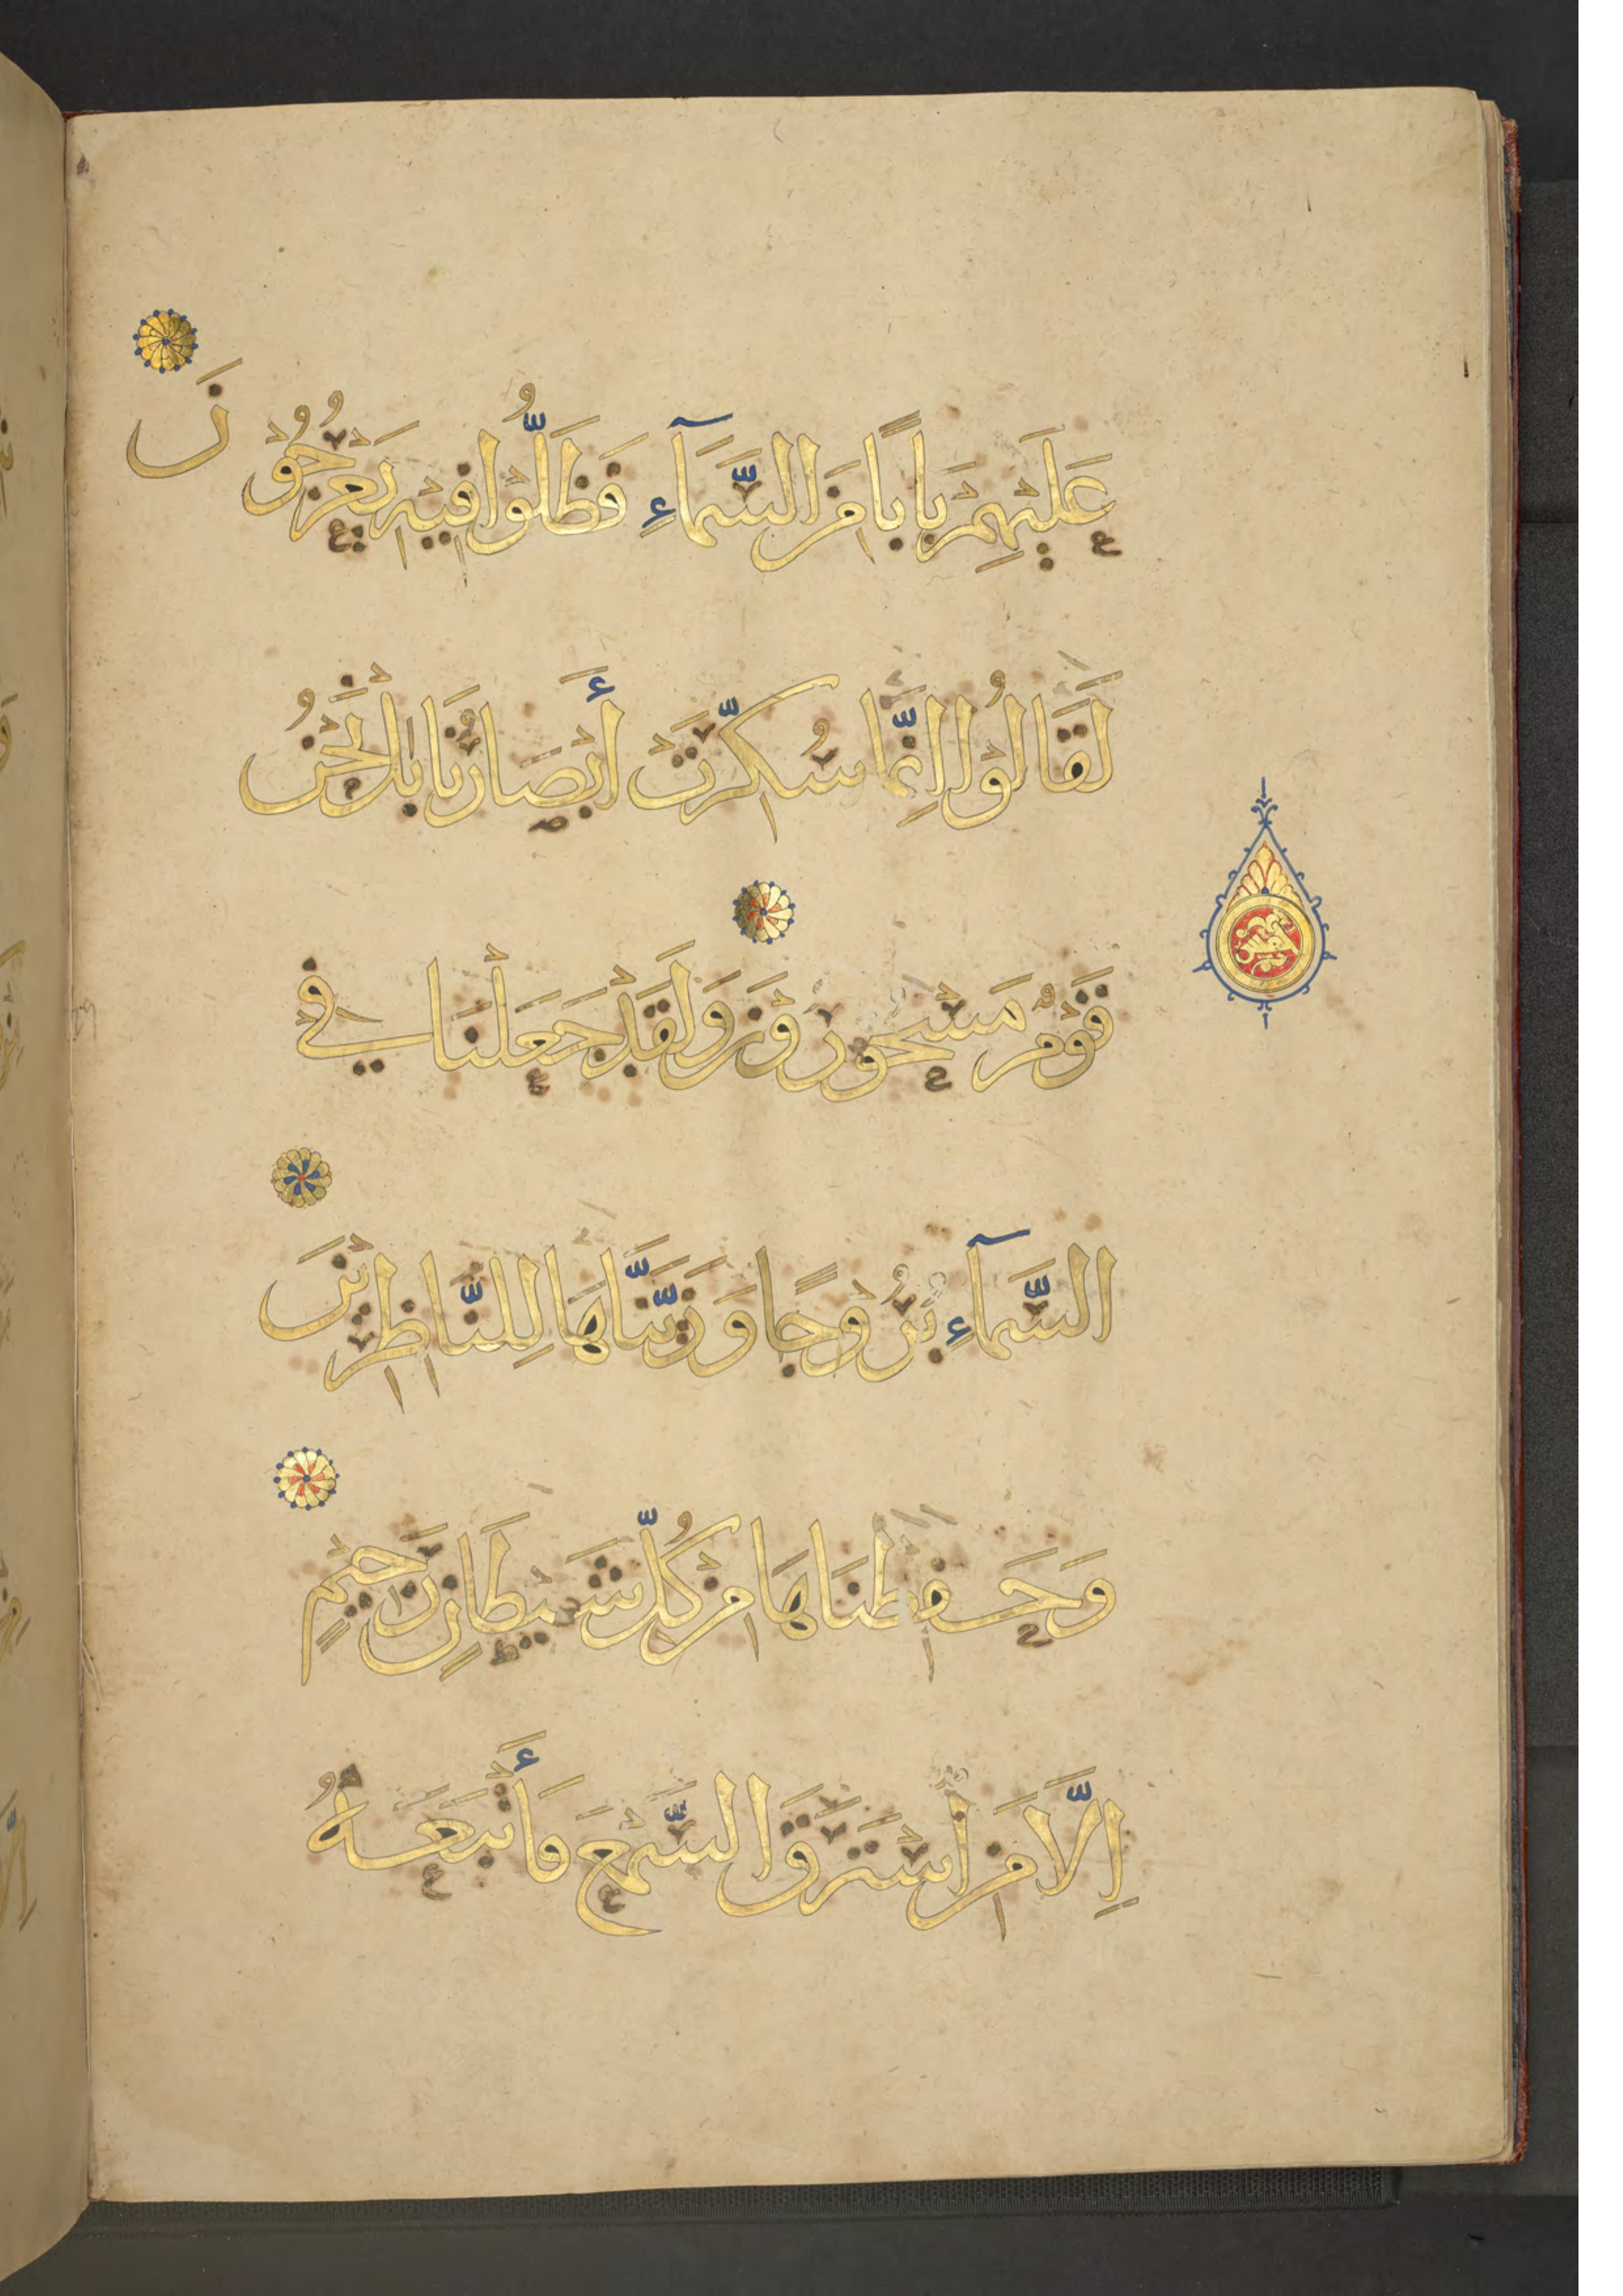 عَلَيْهِمْ بَابًا مِنَ السَّمَآءِ فَظَلُّوْا فِيْهِ يَعْرُجُوْنَ
لَقَالُوْا اِنَّمَا سُكِّرَتْ أَبْصَارُنَا بَلْ نَحْنُ
قَوْمٌ مَسْحُوْرُوْنَ وَلَقَدْ جَعَلْنَا فِي
السَّمَآءِ بُرُوْجًا وَزَيَّنَّاهَا لِلنَّاظِرِيْنَ
وَحَفِظْنَاهَا مِنْ كُلِّ شَيْطَانٍ رَجِيْمٍ
اِلَّا مَنِ اسْتَرَقَ السَّمْعَ فَأَتْبَعَهُ